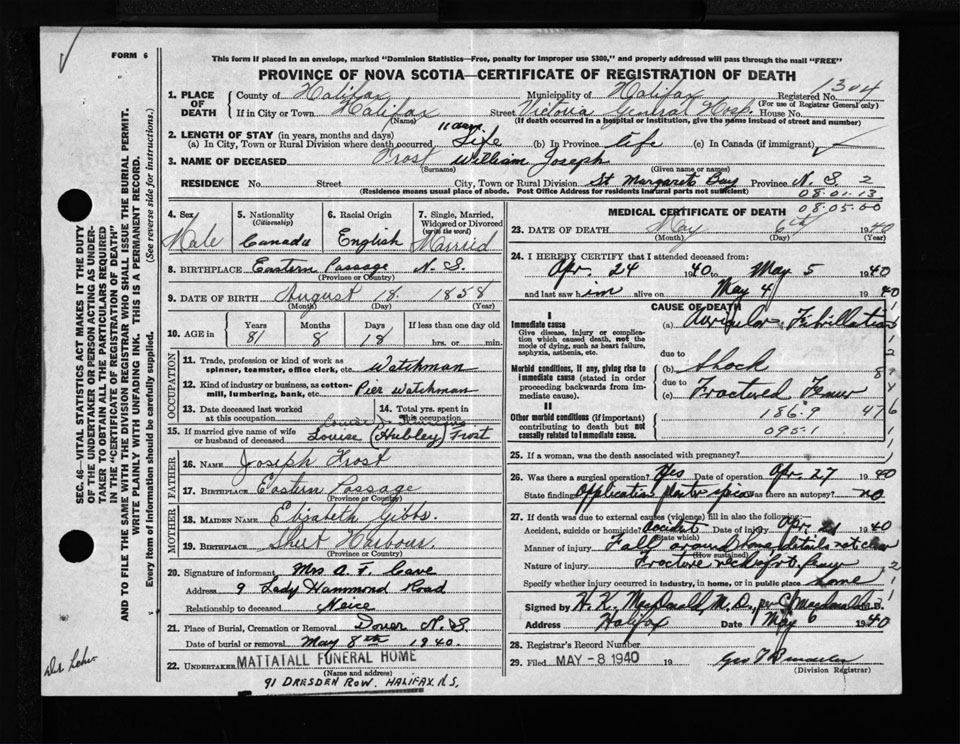 FORM 6
This form if placed in an envelope, marked "Dominion Statistics—Free, penalty for improper use $300," and properly addressed will pass through the mail "FREE"
PROVINCE OF NOVA SCOTIA—CERTIFICATE OF REGISTRATION OF DEATH
1304
1. PLACE OF DEATH
County of Halifax Municipality of Halifax Registered No.
(For use of Registrar General only)
If in City or Town Halifax Street Victoria General Hosp. House No.
(Name) (If death occurred in a hospital or institution, give the name instead of street and number)
2. LENGTH OF STAY (in years, months and days) 11 days
(a) In City, Town or Rural Division where death occurred Life (b) In Province life (c) In Canada (if immigrant)
3. NAME OF DECEASED Frost William Joseph
(Surname) (Given name or names)
RESIDENCE No. Street City, Town or Rural Division St Margarets Bay Province N.S. 2
(Residence means usual place of abode. Post Office Address for residents in rural parts not sufficient)
08.01.13
08.05.00
4. Sex Male
5. Nationality (Citizenship) Canada
6. Racial Origin English
7. Single, Married, Widowed or Divorced (write the word) Married
8. BIRTHPLACE Eastern Passage N.S.
(Province or Country)
9. DATE OF BIRTH August 18. 1858
(Month) (Day) (Year)
10. AGE in Years 81 Months 8 Days 18 If less than one day old hrs. or min.
OCCUPATION
11. Trade, profession or kind of work as spinner, teamster, office clerk, etc. Watchman
12. Kind of industry or business, as cotton-mill, lumbering, bank, etc. Pier Watchman
13. Date deceased last worked at this occupation
14. Total yrs. spent in this occupation
15. If married give name of wife or husband of deceased Louise (Hubley) Frost
FATHER
16. Name Joseph Frost
17. Birthplace Eastern Passage
(Province or Country)
MOTHER
18. Maiden Name Elizabeth Gibbs
19. Birthplace Sheet Harbour.
(Province or Country)
20. Signature of informant Mrs A. F. Cave
Address 9 Lady Hammond Road
Relationship to deceased Neice
21. Place of Burial, Cremation or Removal Dover N.S.
Date of burial or removal May 8th 1940.
22. UNDERTAKER MATTATALL FUNERAL HOME
(Name and address)
91 DRESDEN ROW. HALIFAX N.S.
MEDICAL CERTIFICATE OF DEATH
23. DATE OF DEATH May 6th 1940
(Month) (Day) (Year)
24. I HEREBY CERTIFY that I attended deceased from:
Apr. 24 1940 to May 5 1940
and last saw him alive on May 4 1940
CAUSE OF DEATH
I
Immediate cause (a) Auricular Fibrillation
Give disease, injury or complication which caused death, not the mode of dying, such as heart failure, asphyxia, asthenia, etc.
due to
Morbid conditions, if any, giving rise to immediate cause (stated in order proceeding backwards from immediate cause). (b) Shock
due to
(c) Fractured Femur
II
Other morbid conditions (if important) contributing to death but not causally related to immediate cause.
186.9
095.1
25. If a woman, was the death associated with pregnancy?
26. Was there a surgical operation? Yes Date of operation Apr. 27 1940
State findings Application plaster spica Was there an autopsy? no
27. If death was due to external causes (violence) fill in also the following:—
Accident, suicide or homicide? Accident Date of injury Apr. 1940
(State which)
Manner of injury Fall around home details not clear
(How sustained)
Nature of injury Fracture neck of femur
Specify whether injury occurred in industry, in home, or in public place home
Signed by H. K. MacDonald M.D.
Address Halifax Date May 6 1940
28. Registrar's Record Number
29. Filed MAY -8 1940 19
(Division Registrar)
SEC. 46—VITAL STATISTICS ACT MAKES IT THE DUTY OF THE UNDERTAKER OR PERSON ACTING AS UNDERTAKER TO OBTAIN ALL THE PARTICULARS REQUIRED IN THE "CERTIFICATE OF REGISTRATION OF DEATH" AND TO FILE THE SAME WITH THE DIVISION REGISTRAR WHO SHALL ISSUE THE BURIAL PERMIT.
WRITE PLAINLY WITH UNFADING INK. THIS IS A PERMANENT RECORD.
Every item of information should be carefully supplied. (See reverse side for instructions.)